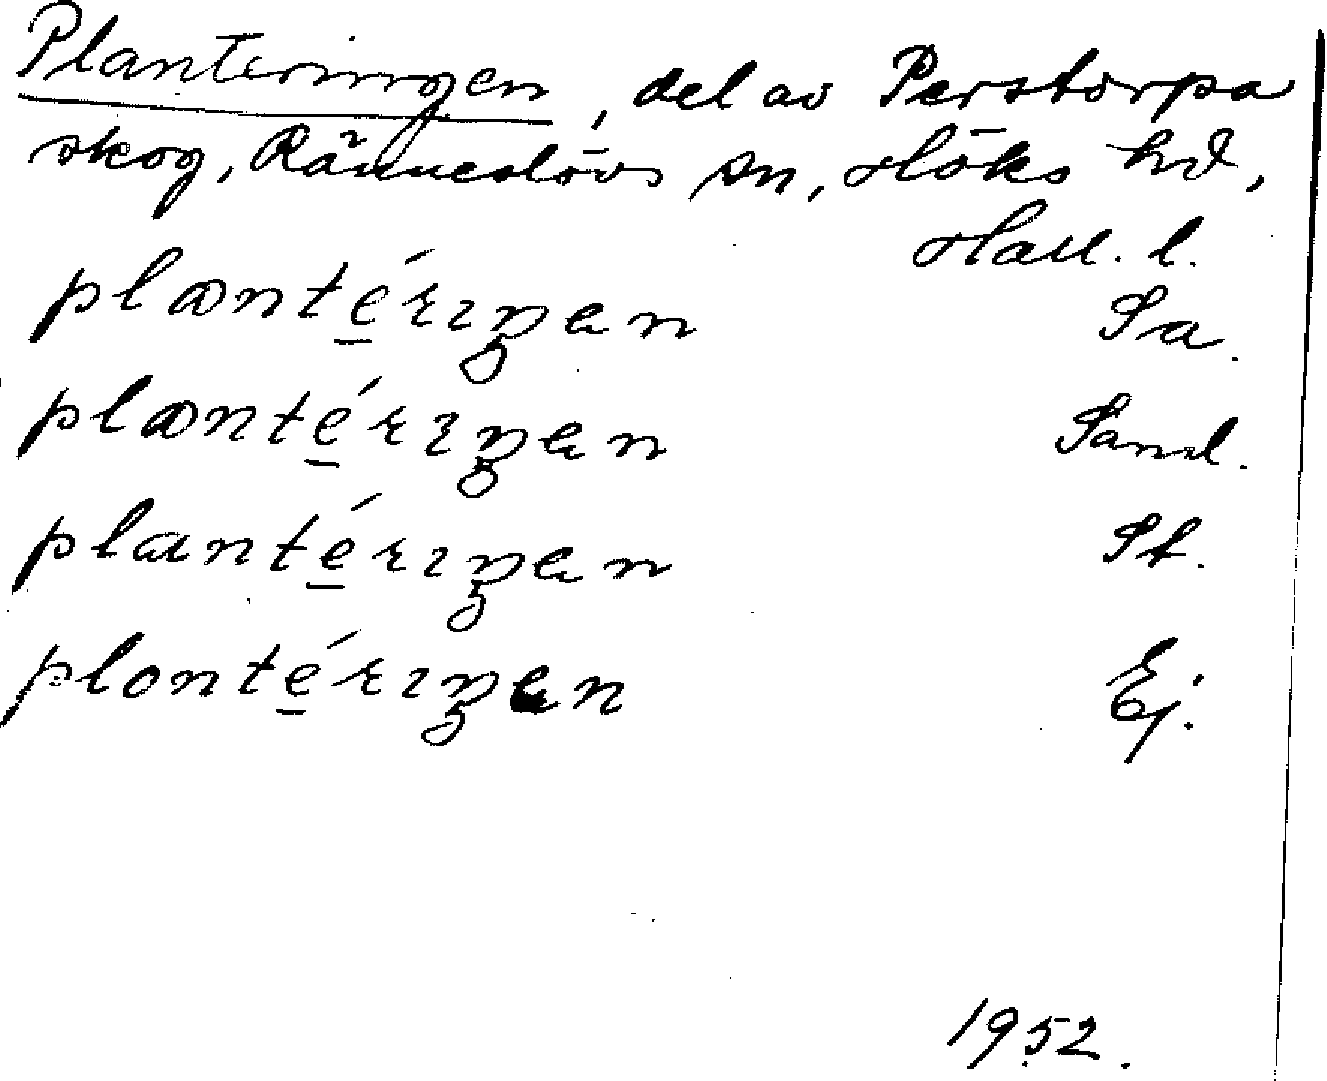 Planteringen, del av Perstorpa
skog, Ränneslövs sn, Höks hd,
Hall. l.
plantérıŋen Sa.
plantérıŋen Sand.
plantérıŋen St.
plontérıŋen Ej.
1952.